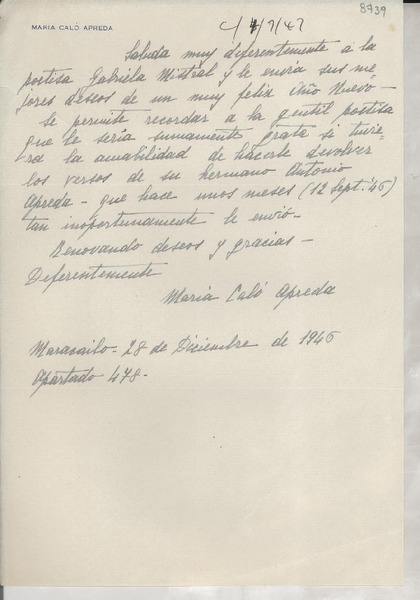 8739
MARIA CALÓ APREDA
c/ 1/7/47
Saluda muy diferentemente a la
poetisa Gabriela Mistral y le envía sus me
jores deseos de un muy feliz Año Nuevo -
Se permite recordar a la gentil poetisa
que le sería sumamente grato si tuvie-
ra la amabilidad de hacerle devolver
los versos de su hermano Antonio
Apreda - que hace unos meses (12 Sept. '46)
tan inoportunamente le envió -
Renovando deseos y gracias -
Diferentemente
María Caló Apreda
Maracaibo - 28 de Diciembre de 1946
Apartado 478 -